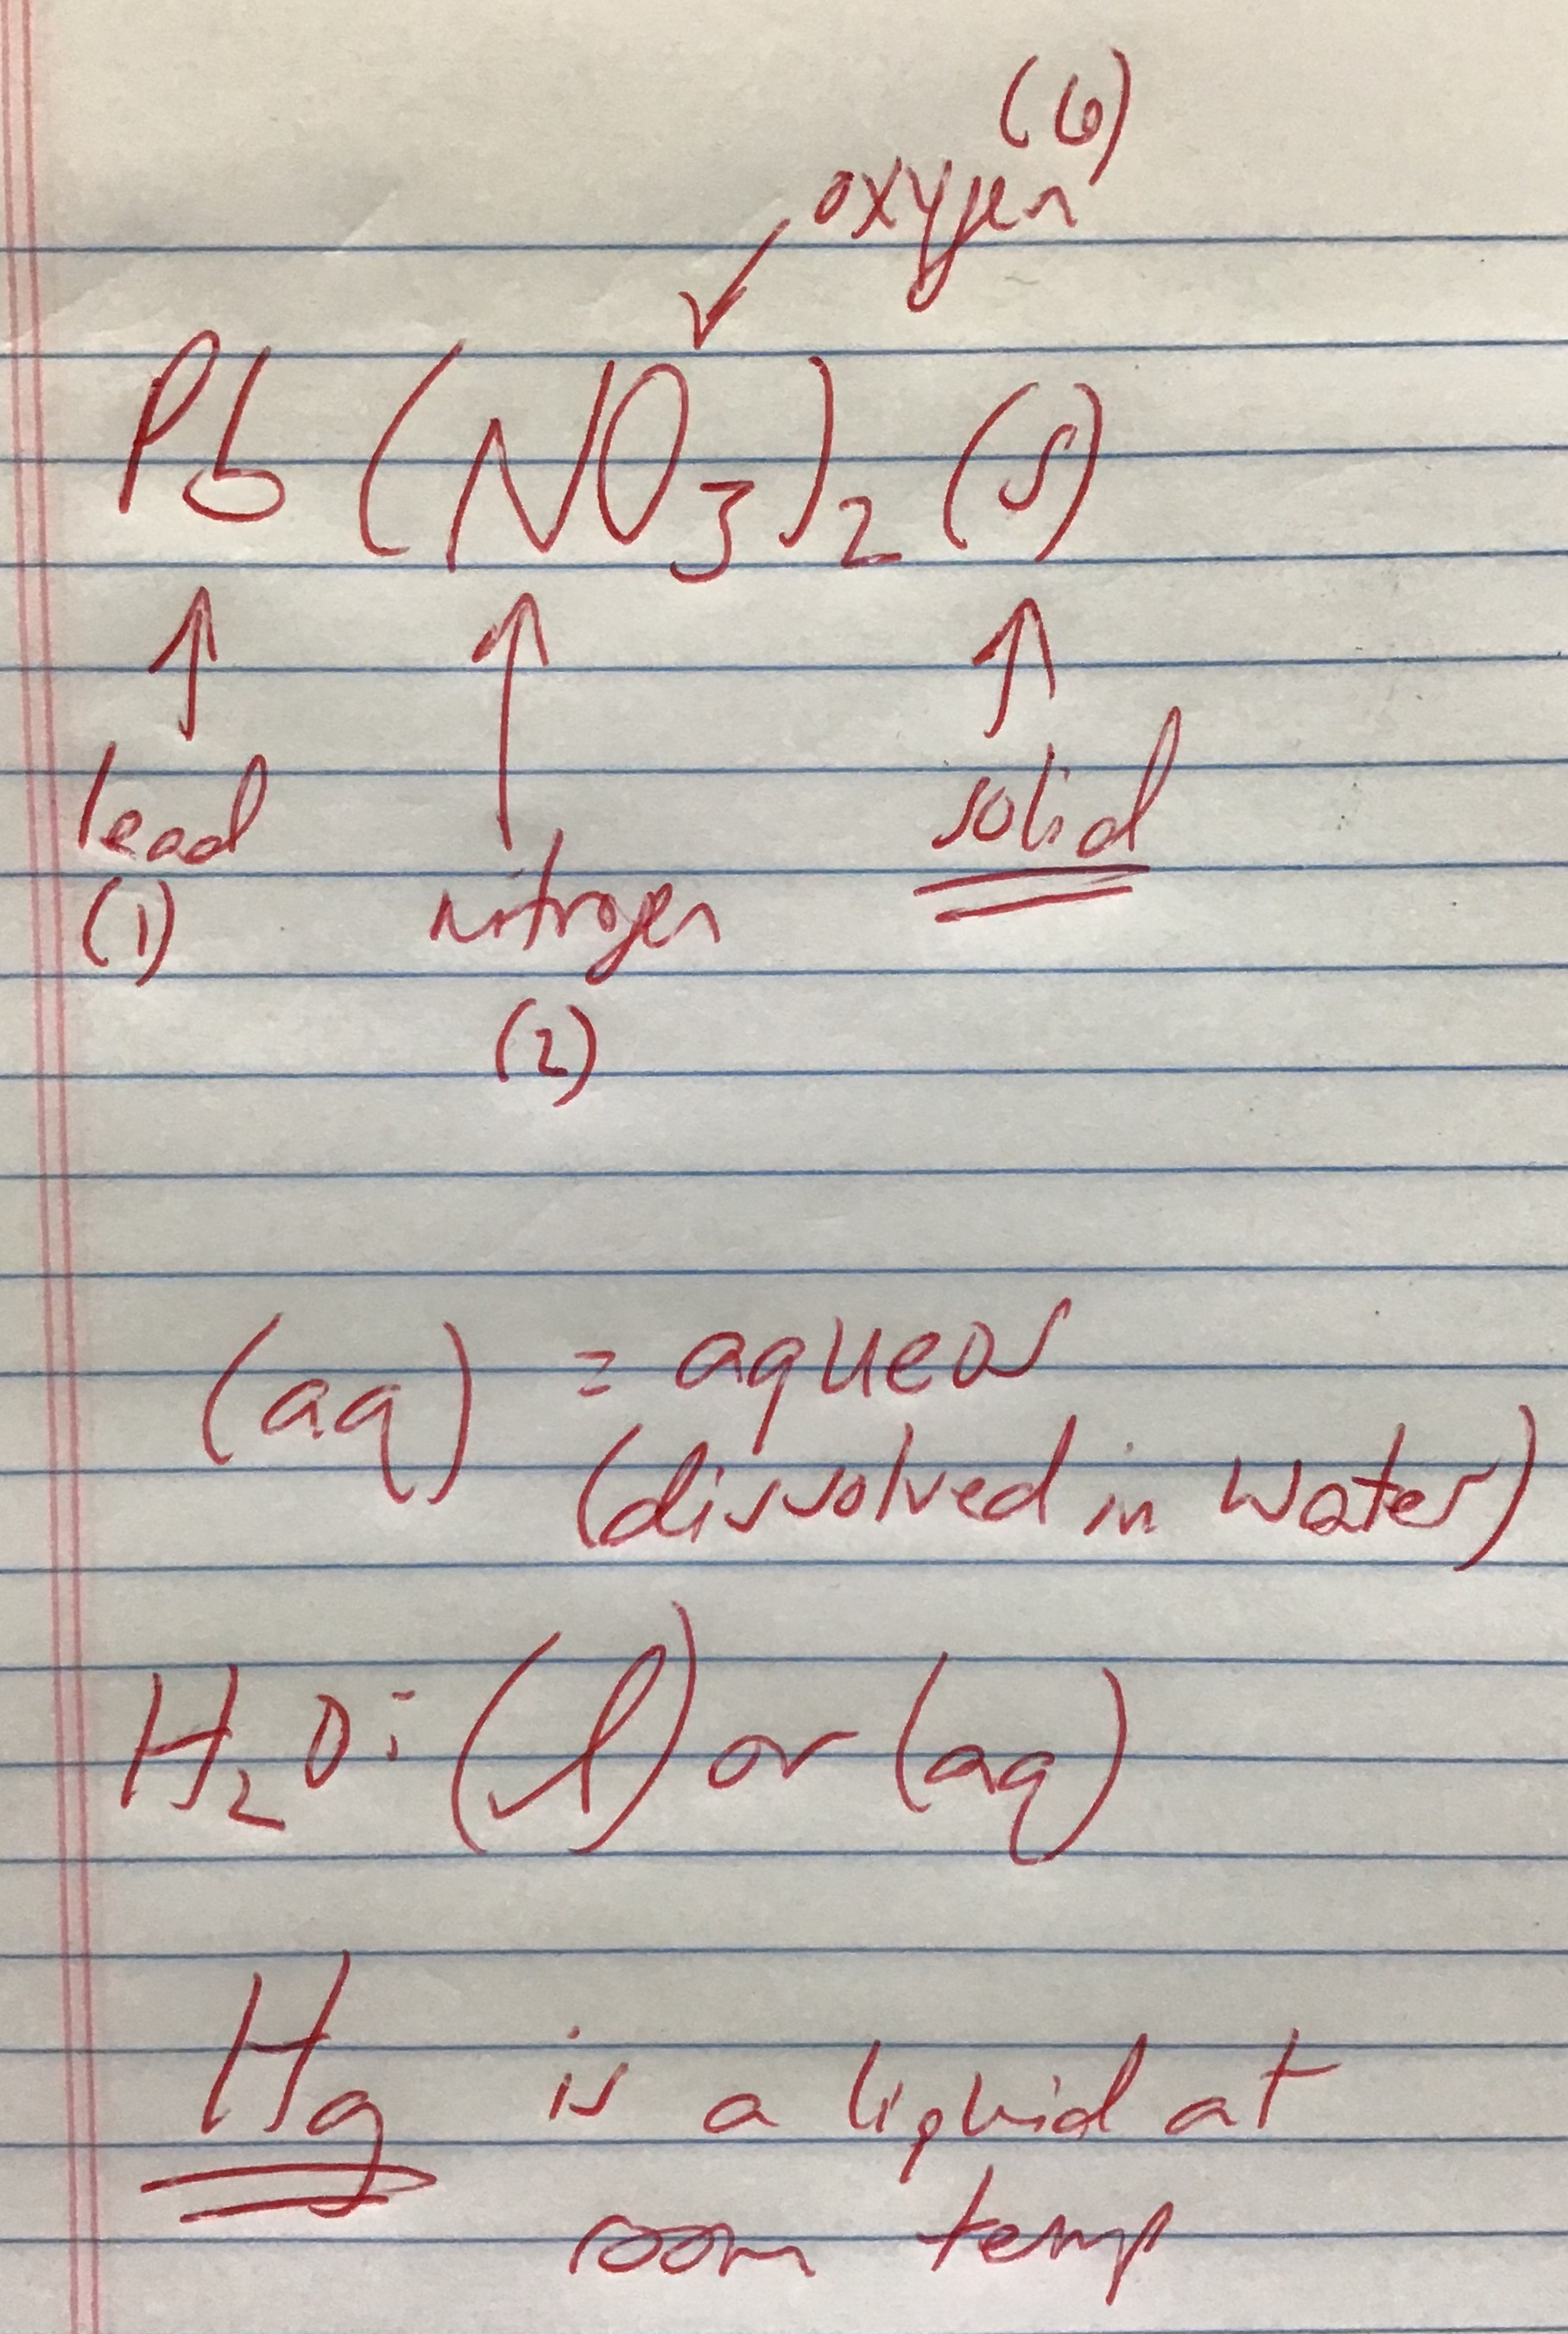 (6)
oxygen
Pb(NO₃)₂(s)
lead
nitrogen
solid
(1)
(2)
(aq) = aqueous
(dissolved in water)
H₂O: (l) or (aq)
Hg is a liquid at
room temp